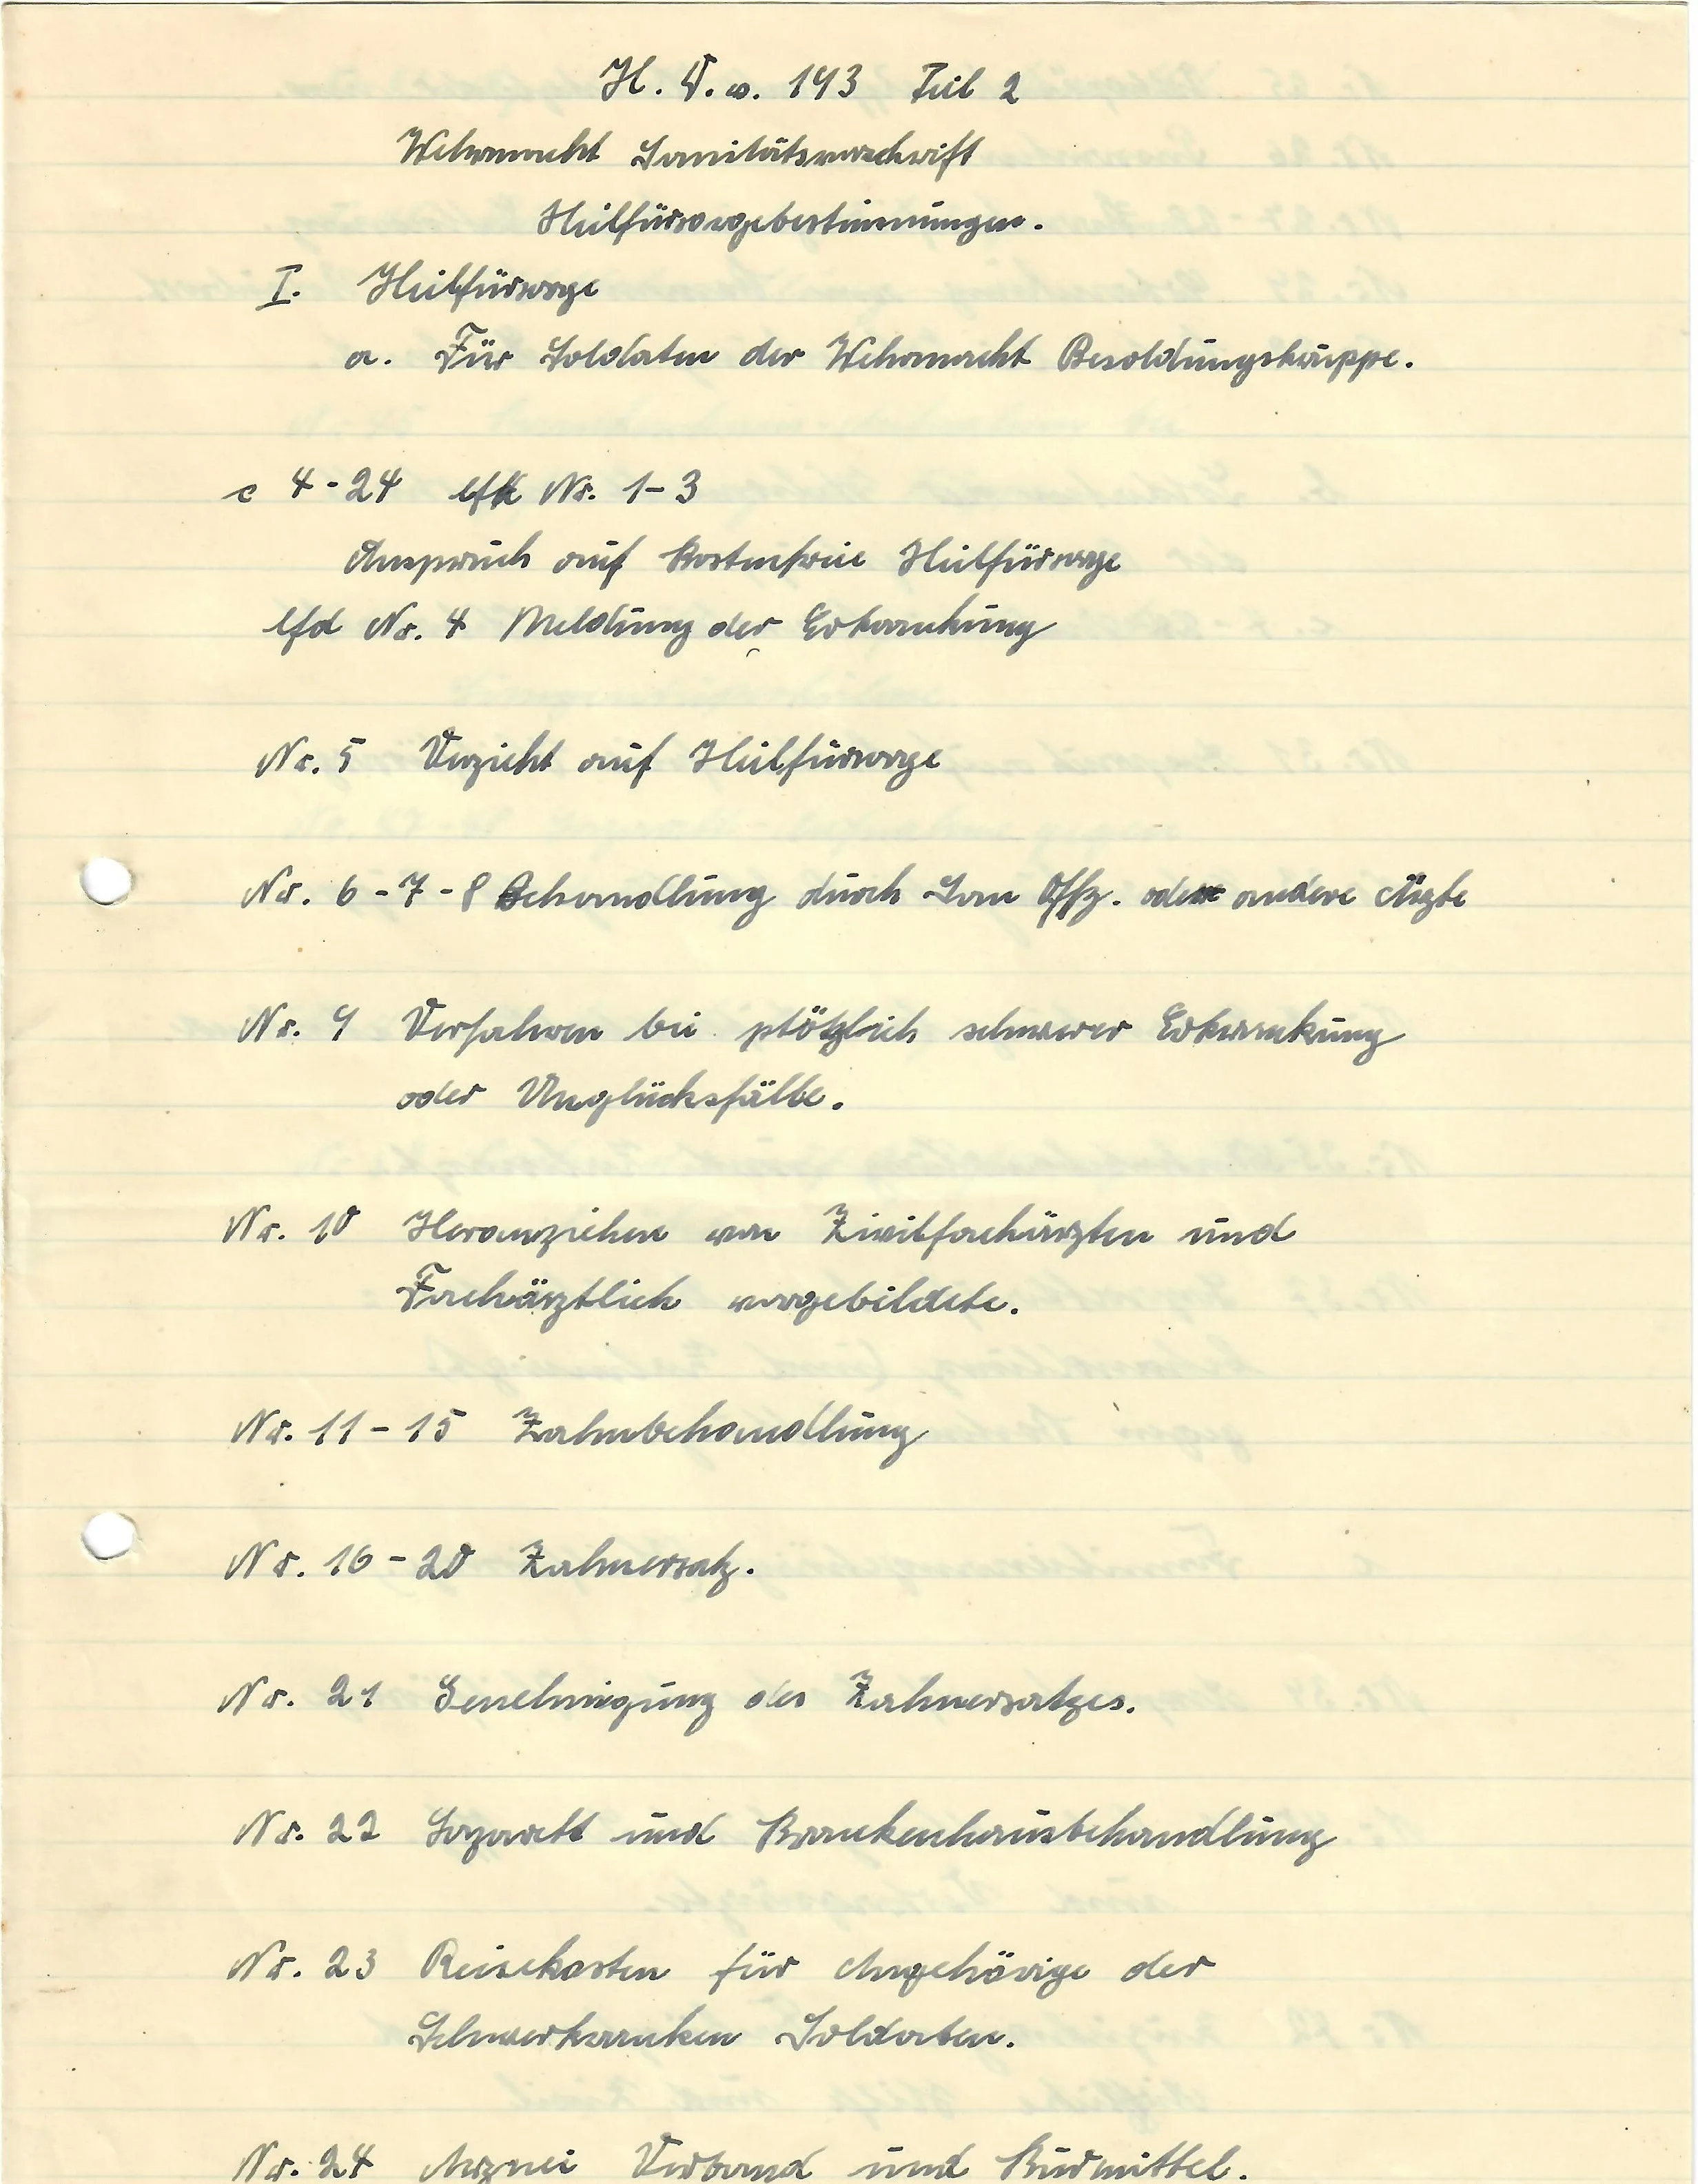 H. V. w. 193 Teil 2
Wehrmacht Sanitätsvorschrift
Heilfürsorgebestimmungen.
I. Heilfürsorge
a. Für Soldaten der Wehrmacht Besoldungskruppe.
c 4-24 lfd Nr. 1-3
Anspruch auf kostenfreie Heilfürsorge
lfd Nr. 4 Meldung der Erkrankung
Nr. 5 Verzicht auf Heilfürsorge
Nr. 6-7-8 Behandlung durch San Offz. oder andere Ärzte
Nr. 9 Verfahren bei plötzlich schwerer Erkrankung
oder Unglücksfälle.
Nr. 10 Heranziehen von Zivilfachärzten und
Fachärztlich vorgebildete.
Nr. 11-15 Zahnbehandlung
Nr. 16-20 Zahnersatz.
Nr. 21 Genehmigung des Zahnersatzes.
Nr. 22 Lazarett und Krankenhausbehandlung
Nr. 23 Reisekosten für Angehörige der
Schwerkranken Soldaten.
Nr. 24 Arznei Verband und Kurmittel.